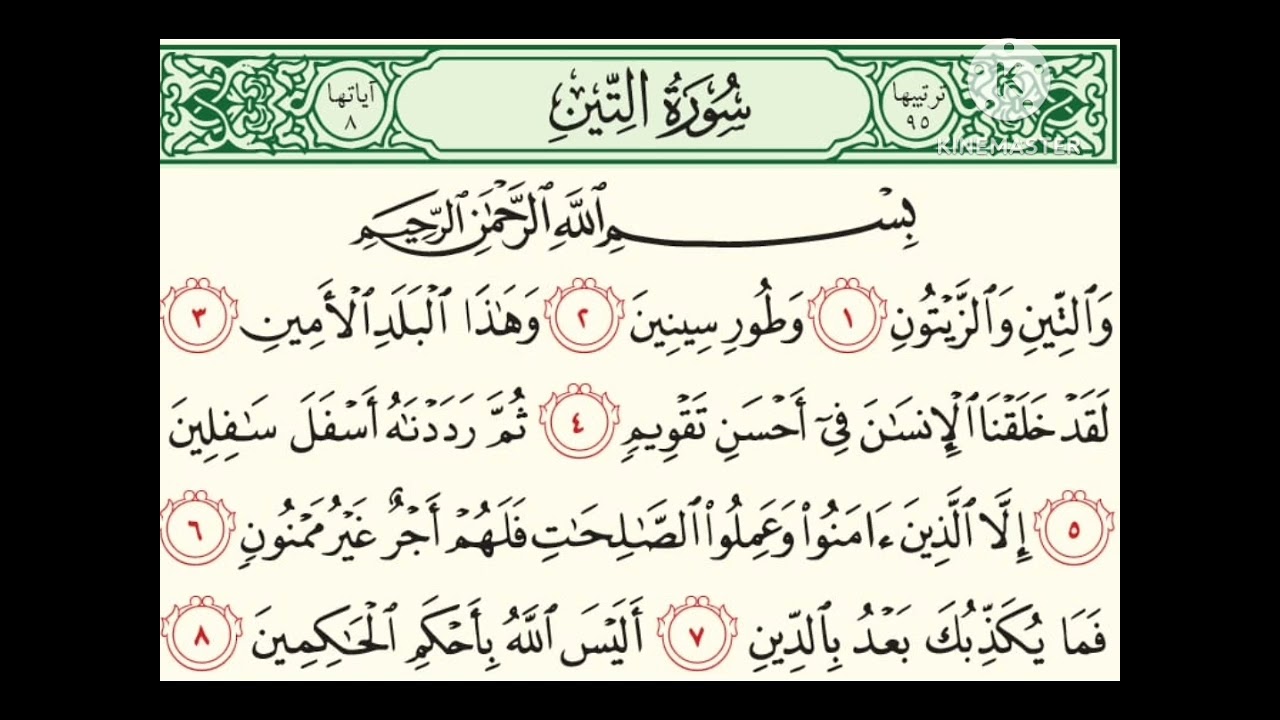 ترتيبها
٩٥
سُورَةُ التِّينِ
آياتها
٨
KINEMASTER
بِسْمِ ٱللَّهِ ٱلرَّحْمَٰنِ ٱلرَّحِيمِ
وَٱلتِّينِ وَٱلزَّيْتُونِ ١ وَطُورِ سِينِينَ ٢ وَهَٰذَا ٱلْبَلَدِ ٱلْأَمِينِ ٣
لَقَدْ خَلَقْنَا ٱلْإِنسَٰنَ فِىٓ أَحْسَنِ تَقْوِيمٍ ٤ ثُمَّ رَدَدْنَٰهُ أَسْفَلَ سَٰفِلِينَ
٥ إِلَّا ٱلَّذِينَ ءَامَنُوا۟ وَعَمِلُوا۟ ٱلصَّٰلِحَٰتِ فَلَهُمْ أَجْرٌ غَيْرُ مَمْنُونٍ ٦
فَمَا يُكَذِّبُكَ بَعْدُ بِٱلدِّينِ ٧ أَلَيْسَ ٱللَّهُ بِأَحْكَمِ ٱلْحَٰكِمِينَ ٨